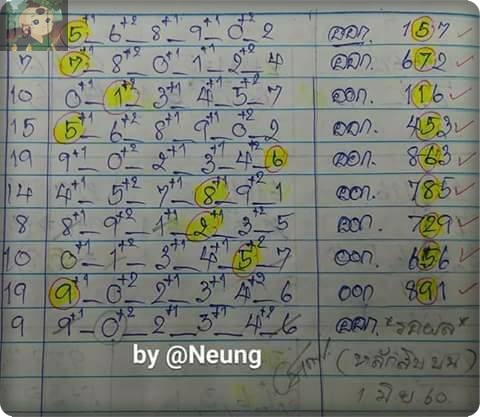 5 +1 6 +2 8 +1 9 +1 0 +2 2 ออก. 157 ✓
7 7 +1 8 +2 0 +1 1 +1 2 +2 4 ออก. 672 ✓
10 0 +1 1 +2 3 +1 4 +1 5 +2 7 ออก. 116 ✓
15 5 +1 6 +2 8 +1 9 +1 0 +2 2 ออก. 453 ✓
19 9 +1 0 +2 2 +1 3 +1 4 +2 6 ออก. 863 ✓
14 4 +1 5 +2 7 +1 8 +1 9 +2 1 ออก. 785 ✓
8 8 +1 9 +2 1 +1 2 +1 3 +2 5 ออก. 729 ✓
10 0 +1 1 +2 3 +1 4 +1 5 +2 7 ออก. 656 ✓
19 9 +1 0 +2 2 +1 3 +1 4 +2 6 ออก 891 ✓
9 9 +1 0 +2 2 +1 3 +1 4 +2 6 ออก. *รอผล*
by @Neung (หลักสิบบน)
1 มิย 60.